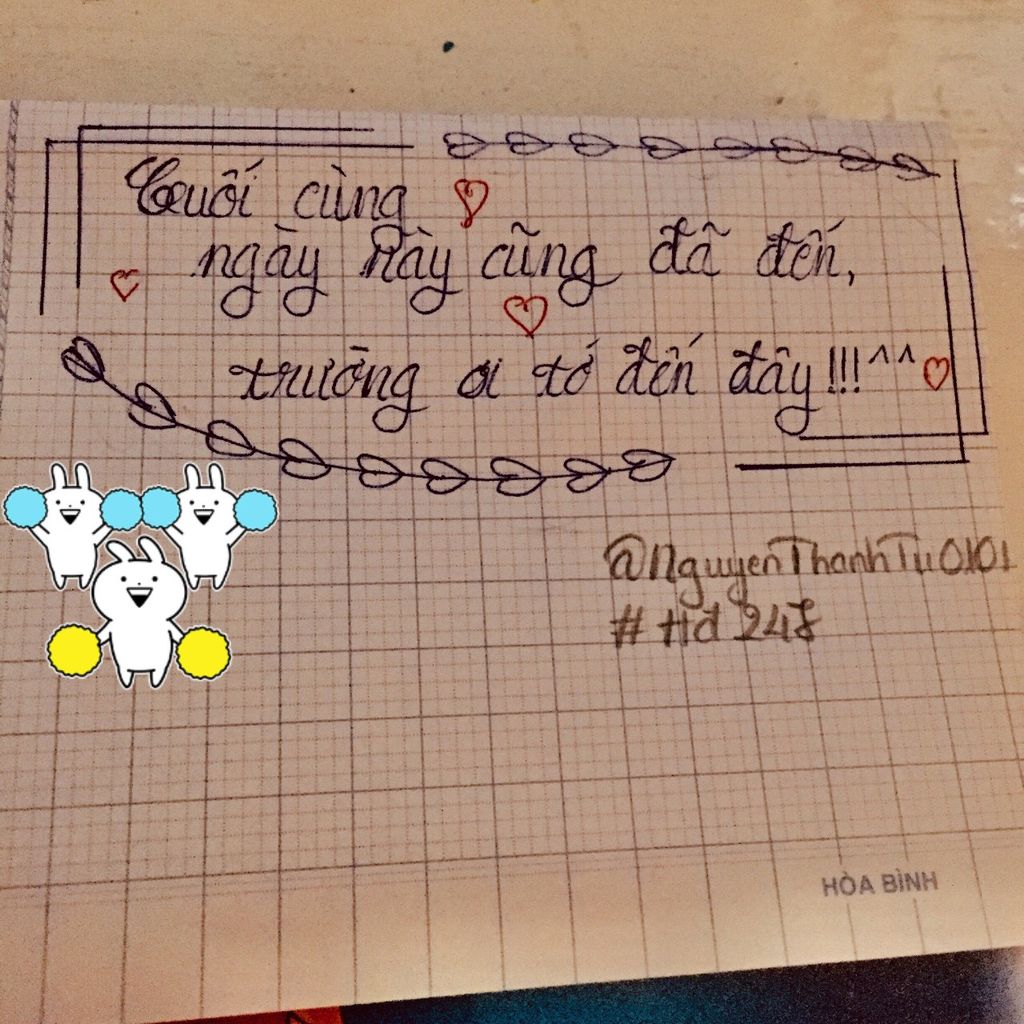 Cuối cùng
ngày này cũng đã đến,
trường ơi tớ đến đây!!!^^
@NguyenThanhTu0101
# Hd 248
HÒA BÌNH